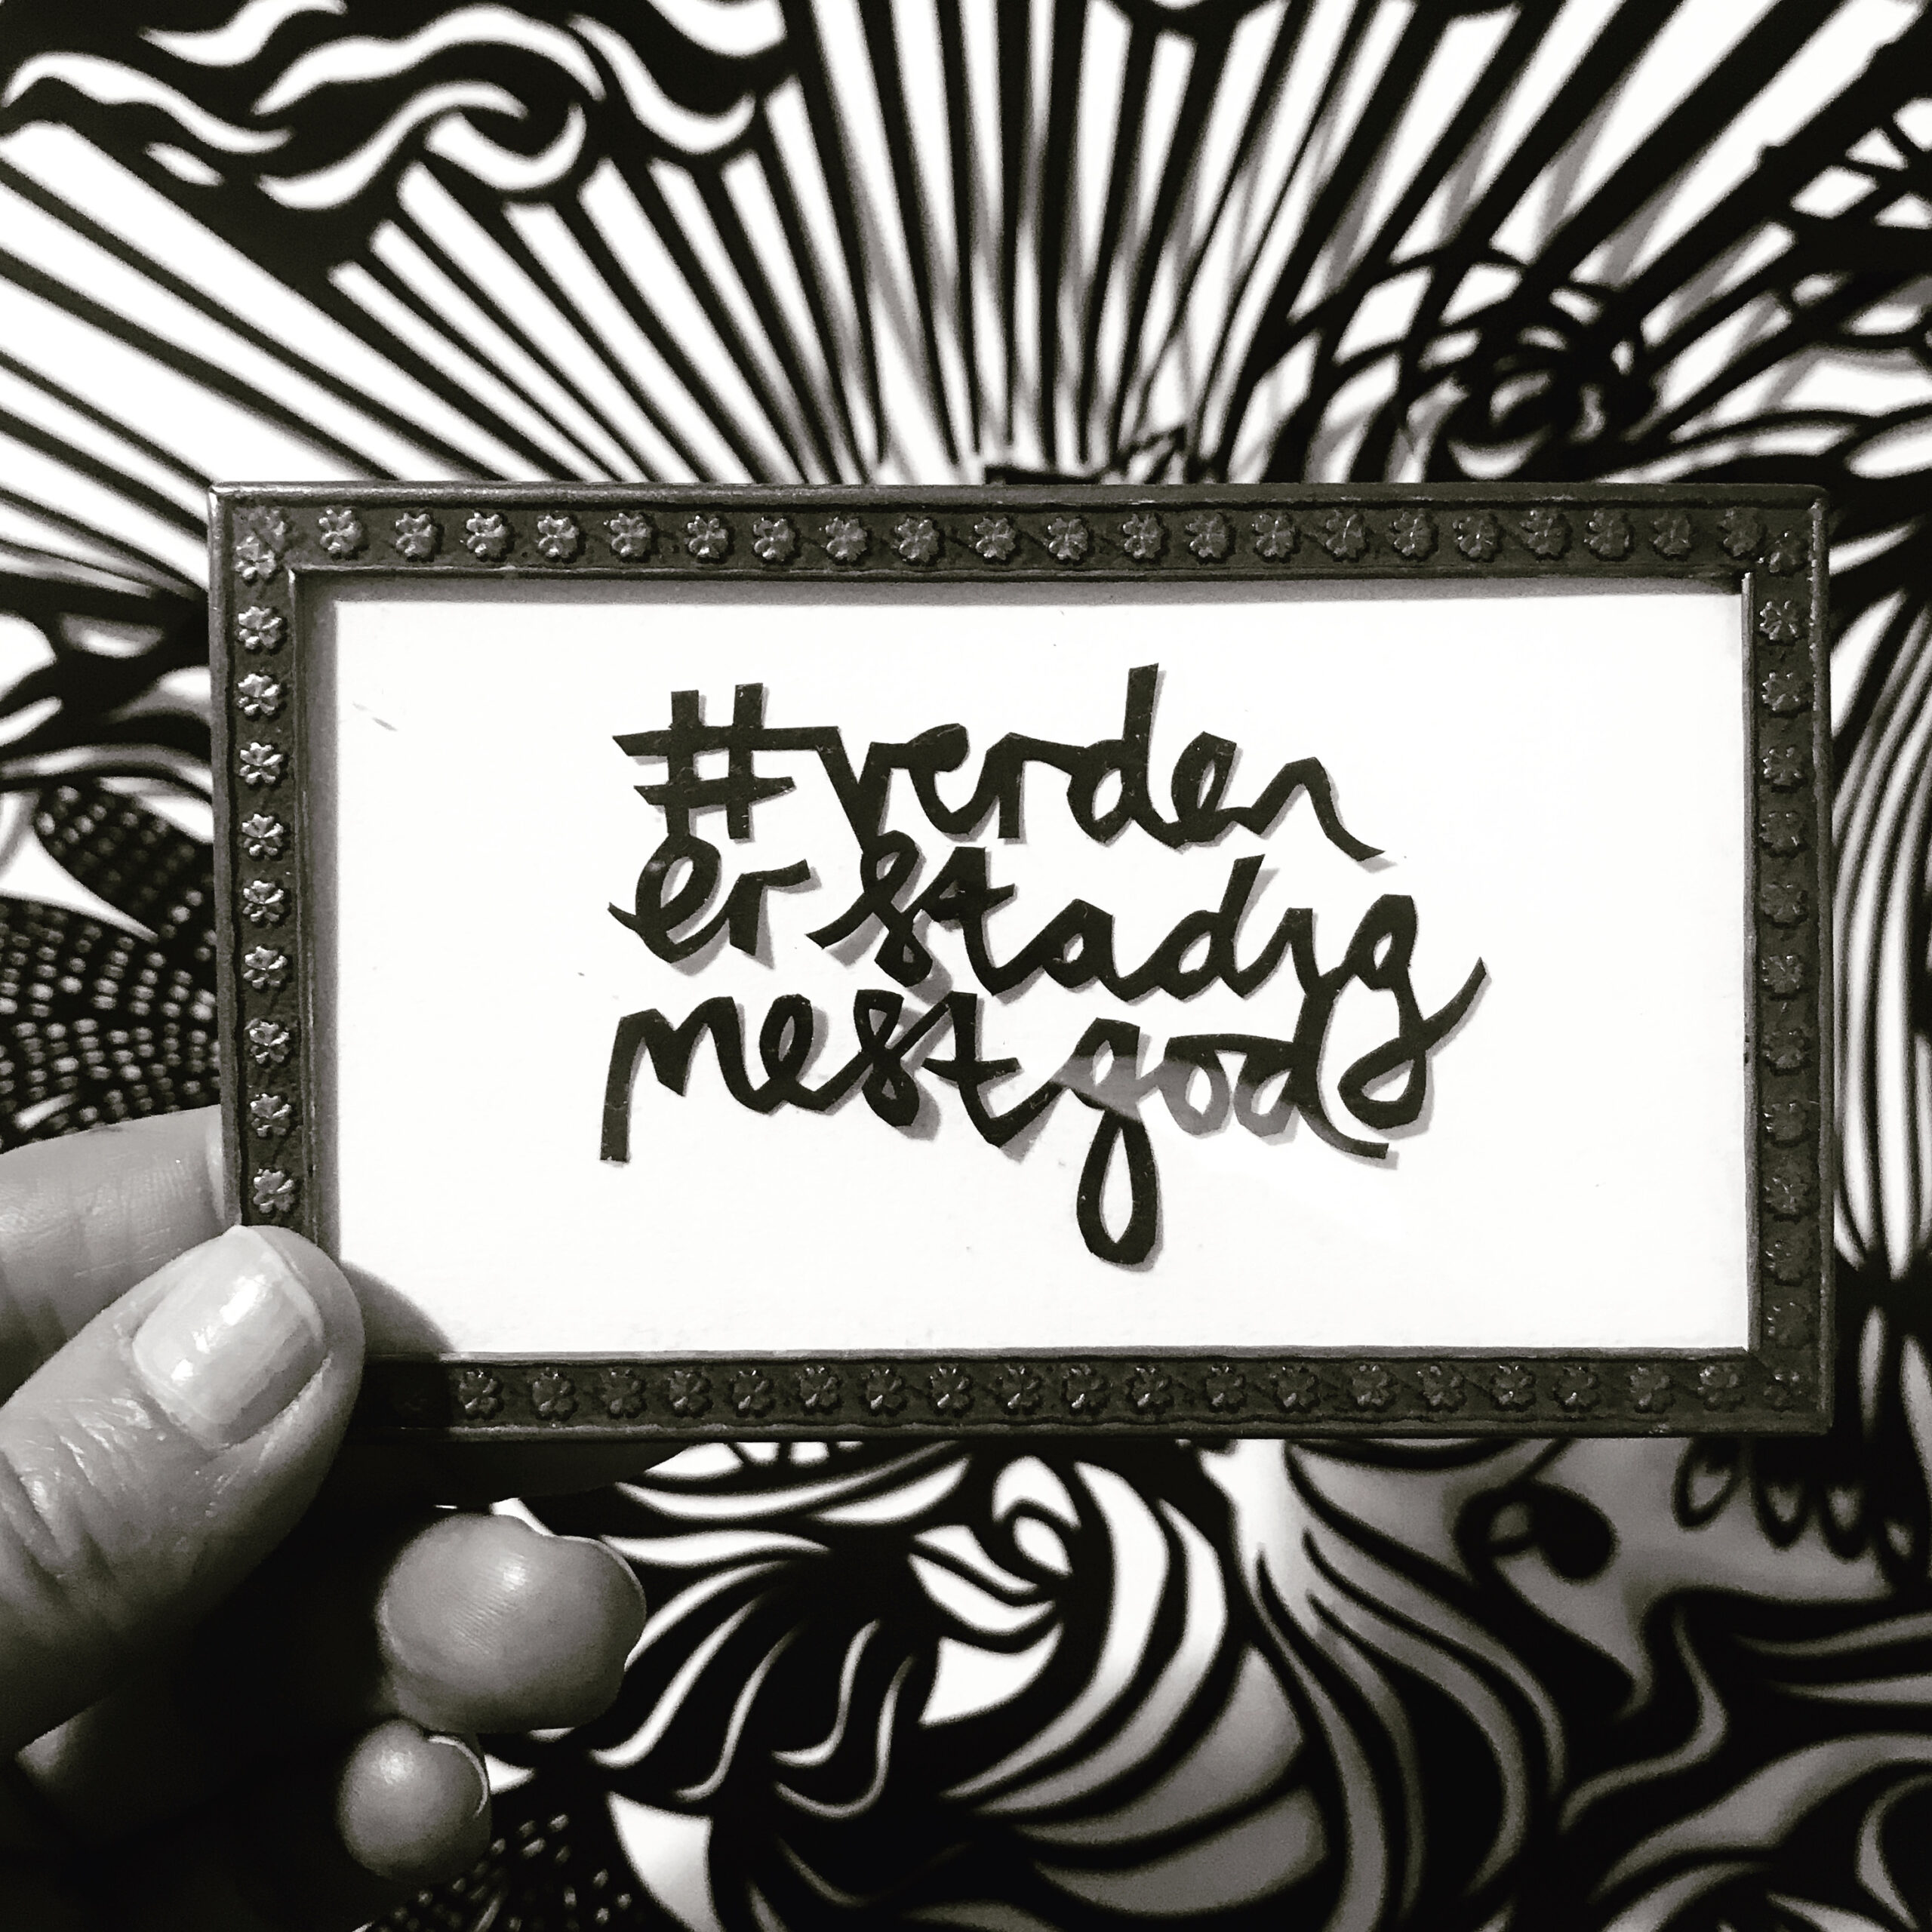 #verden
er stadig
mest god